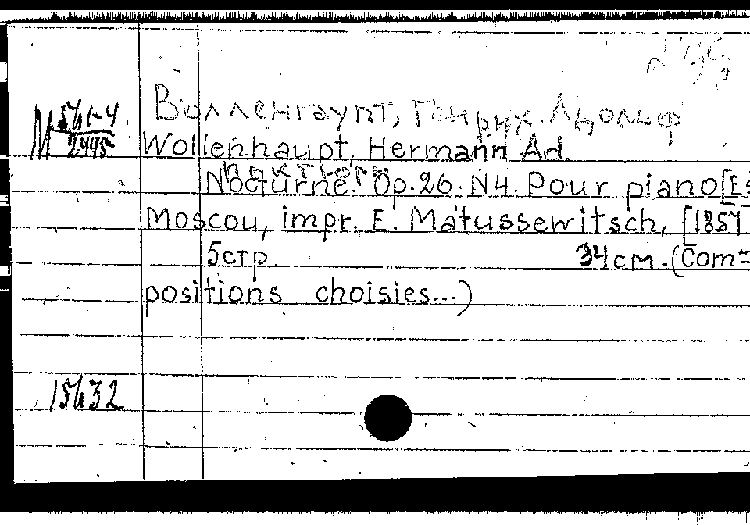 М 561-4
2445
Волленгаупт, Генрих. Адольф
Wollenhaupt, Hermann Ad.
Ноктюрн
Nocturne. Op. 26. N4. Pour piano [Es
Moscou, impr. E. Matussewitsch, [1857
5стр. 34см. (Com=
positions choisies...)
15632